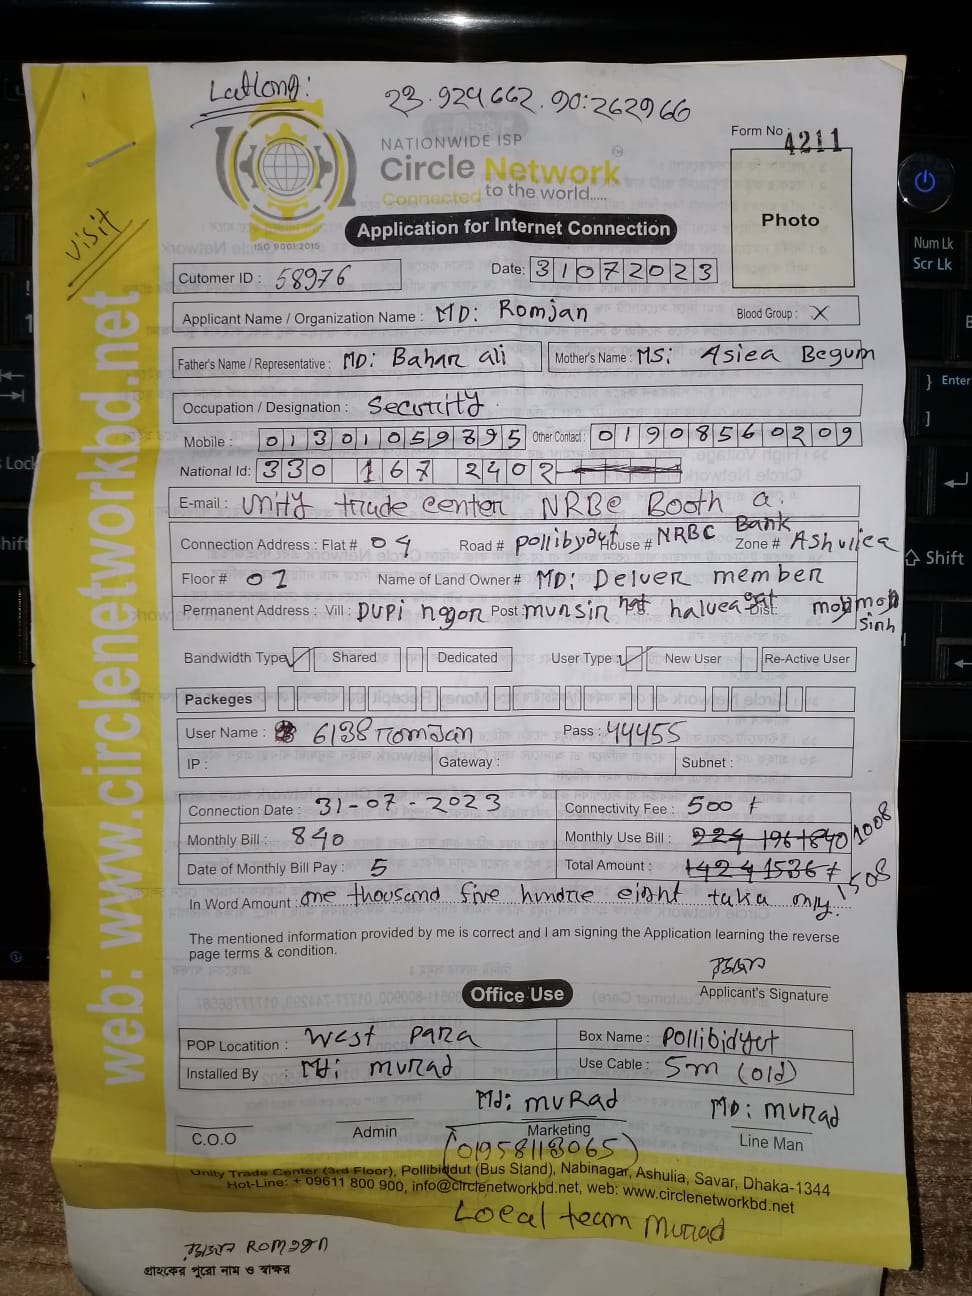 Latlong: 23.924662.90:262966
NATIONWIDE ISP
Circle Network
Connected to the world.....
ISO 9001:2015
Form No 4211
Photo
Application for Internet Connection
visit
web: www.circlenetworkbd.net
Cutomer ID : 58976 Date: 31072023
Applicant Name / Organization Name : MD: Romjan Blood Group : X
Father's Name / Representative : MD: Bahar ali Mother's Name : MS: Asiea Begum
Occupation / Designation : Security
Mobile : 01301059395 Other Contact : 01908560209
National Id: 330 167 2402
E-mail : Unity trade center NRBC Booth a.
Connection Address : Flat # 04 Road # pollibydut House # NRBC Bank Zone # Ashuliea
Floor # 01 Name of Land Owner # MD: Delver member
Permanent Address : Vill : Dupi nagor Post : munsir hat haluea gat Dist: moymon sinh
Bandwidth Type Shared Dedicated User Type : New User Re-Active User
Packeges
User Name : 6138romjan Pass : 44455
IP : Gateway : Subnet :
Connection Date : 31-07-2023 Connectivity Fee : 500 +
Monthly Bill : 840 Monthly Use Bill : 224 196+840 1008
Date of Monthly Bill Pay : 5 Total Amount : 1424 1536+ 1508
In Word Amount : one thousand five hundre eight taka only.
The mentioned information provided by me is correct and I am signing the Application learning the reverse
page terms & condition.
রমজান
Applicant's Signature
Office Use
POP Locatition : West para Box Name : Pollibidyut
Installed By : Md: murad Use Cable : 5m (old)
Md: muRad MD: murad
C.O.O Admin Marketing Line Man
(01958118065)
Unity Trade Center (3rd Floor), Pollibiddut (Bus Stand), Nabinagar, Ashulia, Savar, Dhaka-1344
Hot-Line: + 09611 800 900, info@circlenetworkbd.net, web: www.circlenetworkbd.net
Local team Murad
রমজান Romjan
গ্রাহকের পুরো নাম ও স্বাক্ষর